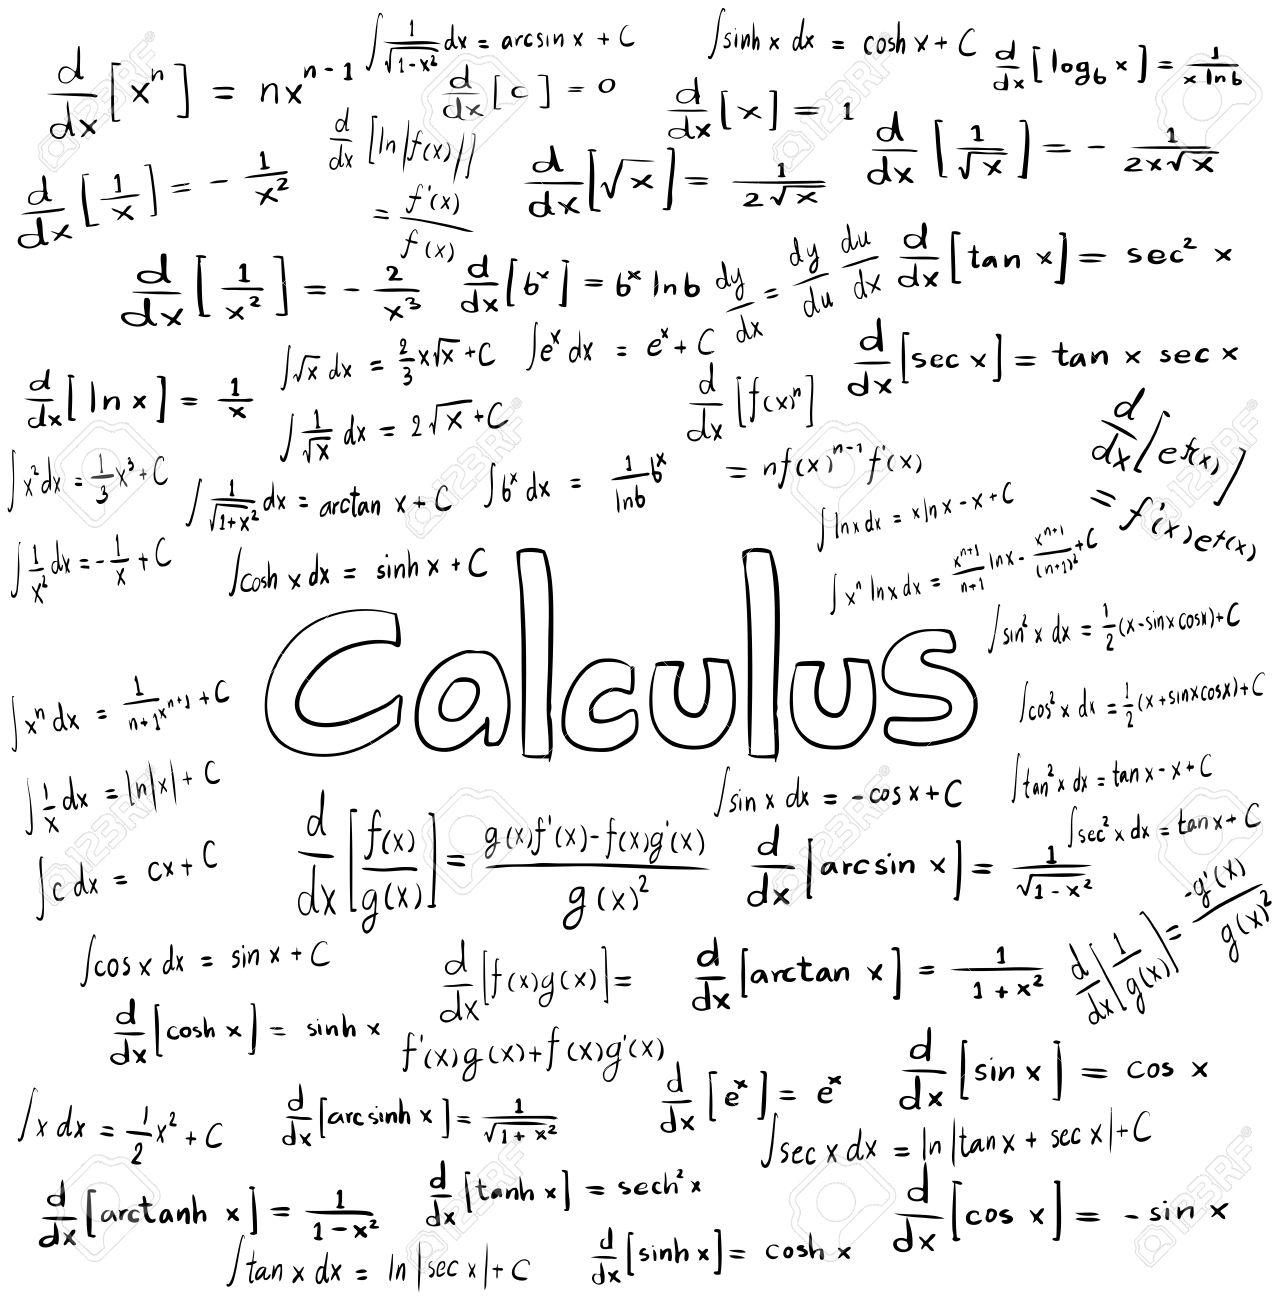 d/dx [xⁿ] = nxⁿ⁻¹
∫ 1/√(1-x²) dx = arcsin x + C
∫ sinh x dx = cosh x + C
d/dx [log_b x] = 1/(x ln b)
d/dx [c] = 0
d/dx [x] = 1
d/dx [1/x] = - 1/x²
d/dx [ln|f(x)|]
= f'(x)/f(x)
d/dx [√x] = 1/(2√x)
d/dx [1/√x] = - 1/(2x√x)
d/dx [1/x²] = - 2/x³
d/dx [bˣ] = bˣ ln b
dy/dx = dy/du du/dx
d/dx [tan x] = sec² x
∫ √x dx = 2/3 x√x + C
∫ eˣ dx = eˣ + C
d/dx [sec x] = tan x sec x
d/dx [ln x] = 1/x
∫ 1/√x dx = 2√x + C
d/dx [f(x)ⁿ]
= nf(x)ⁿ⁻¹ f'(x)
d/dx [ef(x)]
= f'(x)ef(x)
∫ x² dx = 1/3 x³ + C
∫ 1/√(1+x²) dx = arctan x + C
∫ bˣ dx = 1/(ln b) bˣ
∫ ln x dx = x ln x - x + C
∫ 1/x² dx = - 1/x + C
∫ cosh x dx = sinh x + C
∫ xⁿ ln x dx = xⁿ⁺¹/(n+1) ln x - xⁿ⁺¹/(n+1)² + C
Calculus
∫ sin² x dx = 1/2 (x - sin x cos x) + C
∫ xⁿ dx = 1/(n+1) xⁿ⁺¹ + C
∫ cos² x dx = 1/2 (x + sin x cos x) + C
∫ 1/x dx = ln|x| + C
∫ sin x dx = - cos x + C
∫ tan² x dx = tan x - x + C
∫ sec² x dx = tan x + C
∫ c dx = cx + C
d/dx [f(x)/g(x)] = (g(x)f'(x) - f(x)g'(x))/g(x)²
d/dx [arcsin x] = 1/√(1-x²)
d/dx [1/g(x)] = -g'(x)/g(x)²
∫ cos x dx = sin x + C
d/dx [f(x)g(x)] =
f'(x)g(x) + f(x)g'(x)
d/dx [arctan x] = 1/(1+x²)
d/dx [cosh x] = sinh x
d/dx [eˣ] = eˣ
d/dx [sin x] = cos x
∫ x dx = 1/2 x² + C
d/dx [arcsinh x] = 1/√(1+x²)
∫ sec x dx = ln|tan x + sec x| + C
d/dx [arctanh x] = 1/(1-x²)
d/dx [tanh x] = sech² x
d/dx [cos x] = - sin x
∫ tan x dx = ln|sec x| + C
d/dx [sinh x] = cosh x
123RF